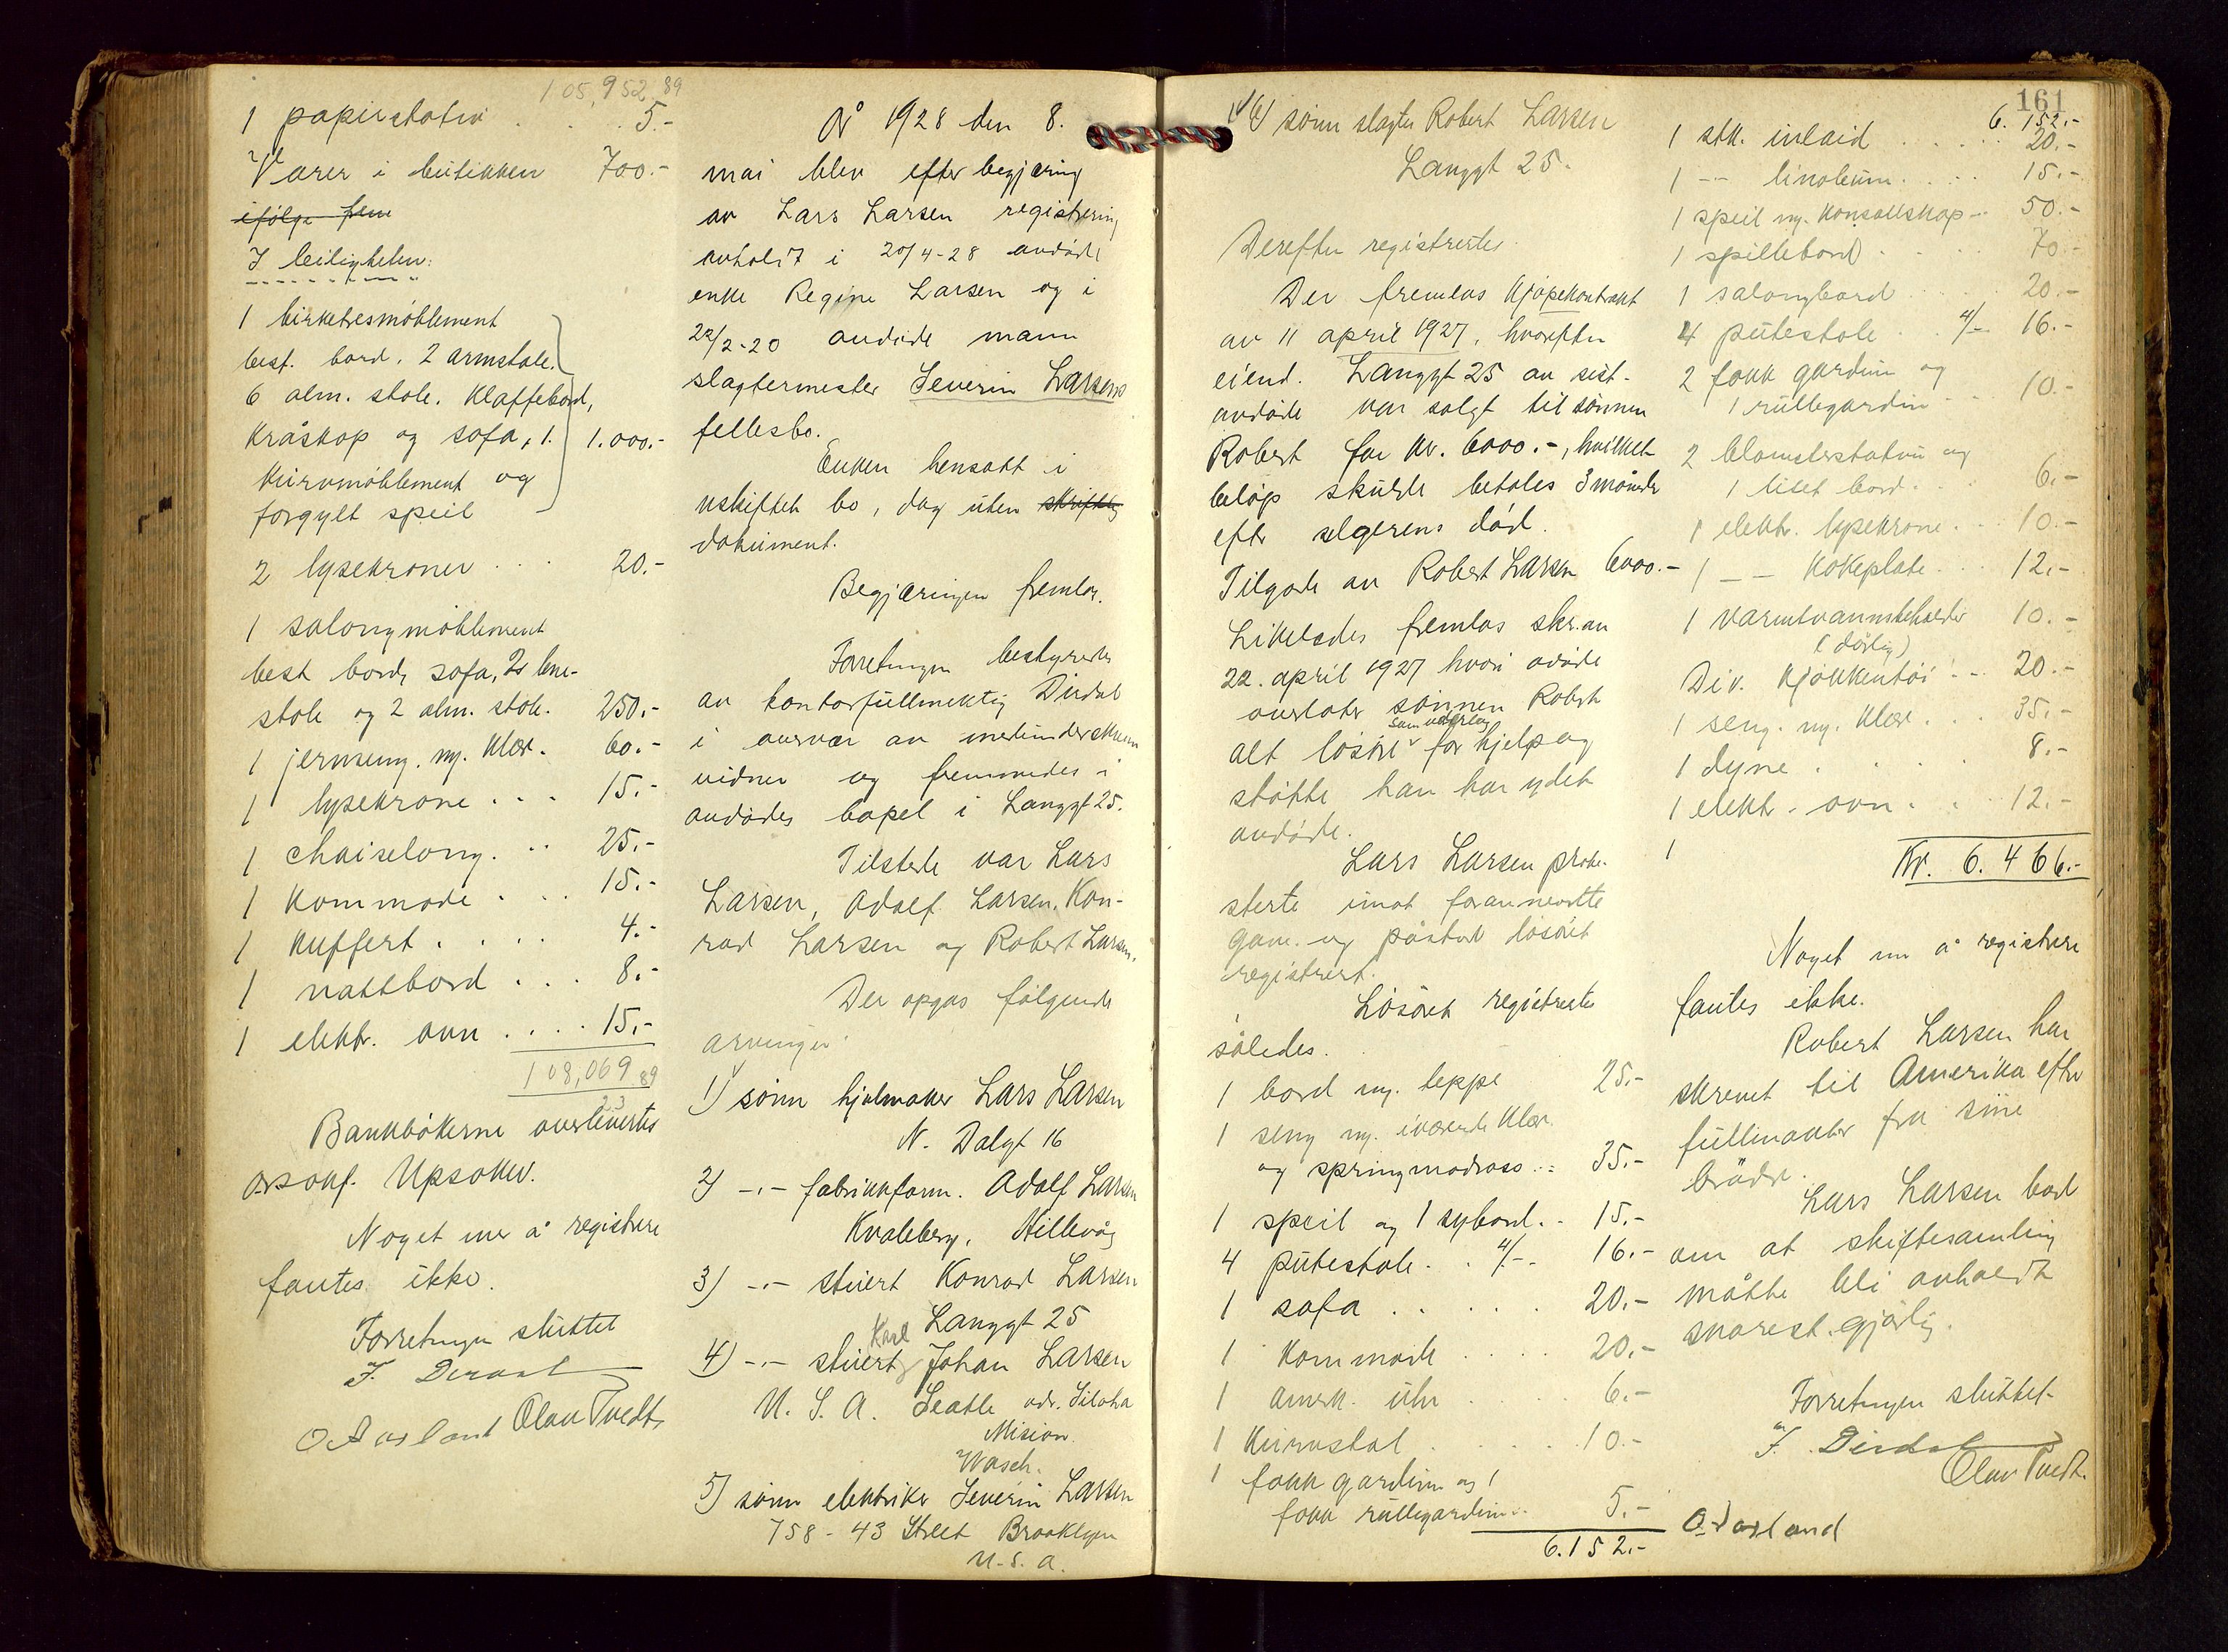 105,952 89
1 papirstativ . . . 5.-
Varer i butikken 700.-
ifølge frem
I leiligheten:
1 birketresmøblement
best. bord. 2 armstole.
6 alm. stole. Klaffebord,
kråskap og sofa, 1. 1.000.-
kurvmøblement og
forgylt speil
2 lysekroner . . . 20.-
1 salongmøblement
best bord, sofa, 2 lene-
stole og 2 alm. stole. 250.-
1 jernseng. m. klær. 60.-
1 lysekrone . . . 15.-
1 chaiselong. . . 25.-
1 kommode . . . 15.-
1 kuffert . . . . 4.-
1 nattbord . . . 8.-
1 elektr. ovn . . . . 15.-
108,069 89
23
Bankbøkerne overlevertes
o.r.sakf. Upsaker.
Noget mer å registrere
fantes ikke.
Forretningen sluttet
F. Dirdal
O Aasland Olav Tvedt
År 1928 den 8.
mai blev efter begjæring
av Lars Larsen registrering
avholdt i 20/4-28 avdøde
enke Regine Larsen og i
22/2-20 avdøde mann
slagtermester Severin Larsens
fellesbo.
Enken hensatt i
uskiftet bo, dog uten skriftlig
dokument.
Begjæringen fremlas.
Forretningen bestyredes
av kontorfullmektig Dirdal
i overvær av medunderskrevne
vidner og fremmedes i
avdødes bopel i Langgt 25.
Tilstede var Lars
Larsen, Adolf Larsen, Kon-
rad Larsen og Robert Larsen.
Der opgas følgende
arvinger:
1) sønn hjulmaker Lars Larsen
N. Dalgt 16
2) -.- fabrikkform. Adolf Larsen
Kvaleberg, Hillevåg
3) -.- stuert Konrad Larsen
Langgt 25
4) -.- stuert Karl Johan Larsen
U. S. A. Seatle adr. Siloha
Mision.
Wasch.
5) sønn elektriker Severin Larsen
758 - 43 Street Brooklyn
U.S.A.
6) sønn slagter Robert Larsen
Langgt 25.
Derefter registrertes.
Der fremlas kjøpekontrakt
av 11 april 1927, hvorefter
eiend. Langgt 25 av sist-
avdøde var solgt til sønnen
Robert for kr. 6000.-, hvilket
beløp skulde betales 3 måneder
efter selgerens død.
Tilgode av Robert Larsen 6000.-
Likeledes fremlas skr. av
22. april 1927 hvori avdøde
overlater sønnen Robert
alt løsøre som vederlag for hjelp og
støtte han har ydet
avdøde.
Lars Larsen prote-
sterte imot forannevnte
gave og påstod løsøret
registrert.
Løsøret registrertes
således.
1 bord m. teppe 25.-
1 seng m. iværende klær
og springmadrass .. 35.-
1 speil og 1 sybord. . 15.-
4 putestole. . 4/- . 16.-
1 sofa . . . . . 20.-
1 kommode . . . . 20.-
1 amrk. uhr . . . 6.-
1 kurvstol . . . . 10.-
1 fakk gardiner og 1
fakk rullegardiner. 5.-
6.152.-
161
6. 152.-
1 stk. inlaid . . . . . 20.-
1 -- linoleum. . . . 15.-
1 speil m. konsollskap - 50.-
1 spillebord . . . . 70.-
1 salongbord . . . . 20.-
4 putestole . . 4/- . 16.-
2 fakk gardiner og
1 rullegardin . . . 10.-
2 blomsterstativ og
1 litet bord . . . 6.-
1 elektr. lysekrone . . 10.-
1 -- kokeplate . . . 12.-
1 varmtvannsbeholder 10.-
(dårlig)
Div. kjøkkentøi . . . 20.-
1 seng. m. klær . . . 35.-
1 dyne . . . . . 8.-
1 elektr. ovn . . . 12.-
1
Kr. 6.466.-
Noget mer å registrere
fantes ikke.
Robert Larsen har
skrevet til Amerika efter
fullmakter fra sine
brødre.
Lars Larsen bad
om at skiftesamling
måtte bli avholdt
snarest gjørlig.
Forretningen sluttet
F. Dirdal
Olav Tvedt.
O Aasland